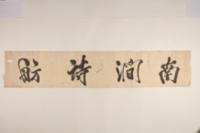 南澗詩舫